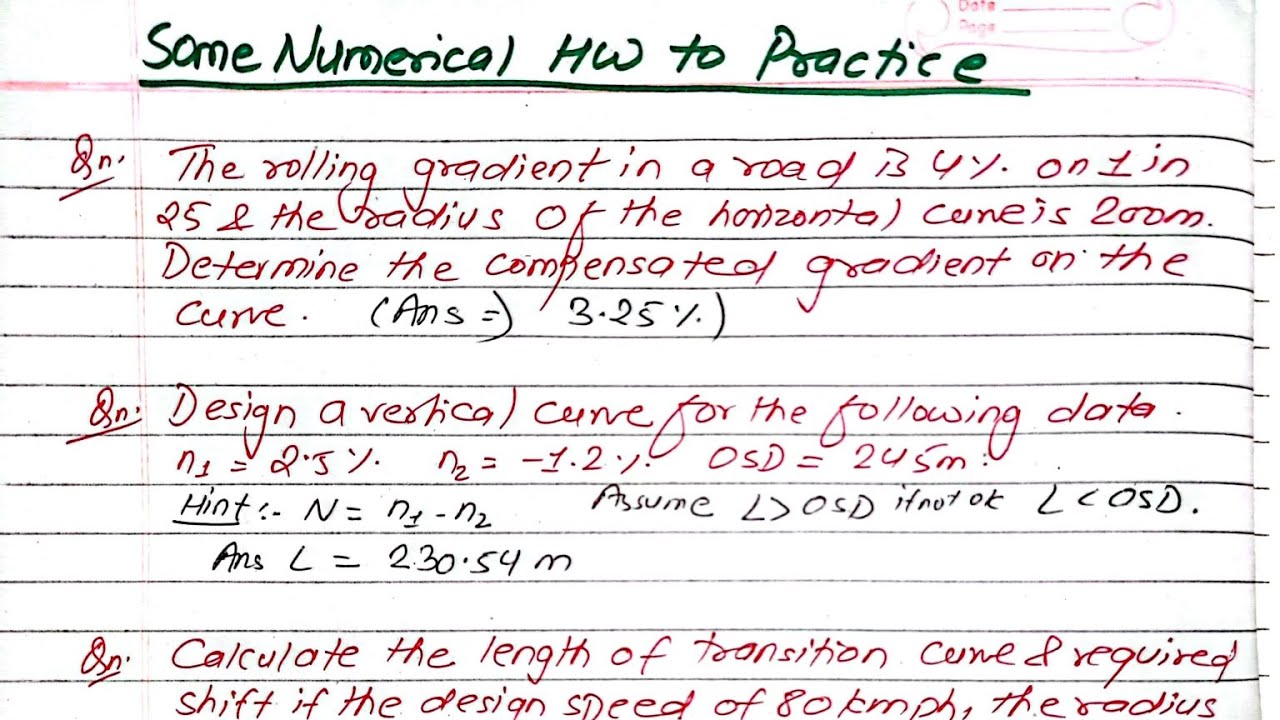 Date
Page
Some Numerical HW to Practice
Qn. The rolling gradient in a road is 4%. on 1 in
25 & the radius of the horizontal curve is 200m.
Determine the compensated gradient on the
curve. (Ans => 3.25%)
Qn. Design a vertical curve for the following data.
n1 = 2.5%. n2 = -1.2%. OSD = 245m.
Hint:- N = n1 - n2 Assume L > OSD if not ok L < OSD.
Ans L = 230.54 m
Qn. Calculate the length of transition curve & required
shift if the design speed of 80 kmph, the radius